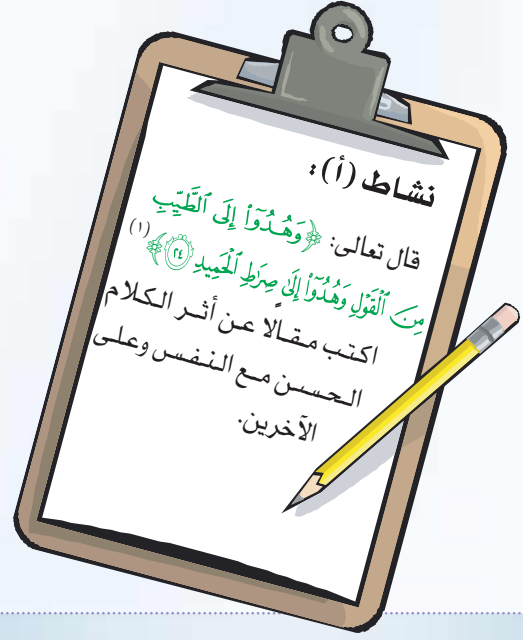 نشاط (أ) :
قال تعالى: ﴿وَهُدُوٓاْ إِلَى ٱلطَّيِّبِ
مِنَ ٱلۡقَوۡلِ وَهُدُوٓاْ إِلَىٰ صِرَٰطِ ٱلۡحَمِيدِ ٢٤﴾ (١)
اكتب مقالًا عن أثر الكلام
الحسن مع النفس وعلى
الآخرين.